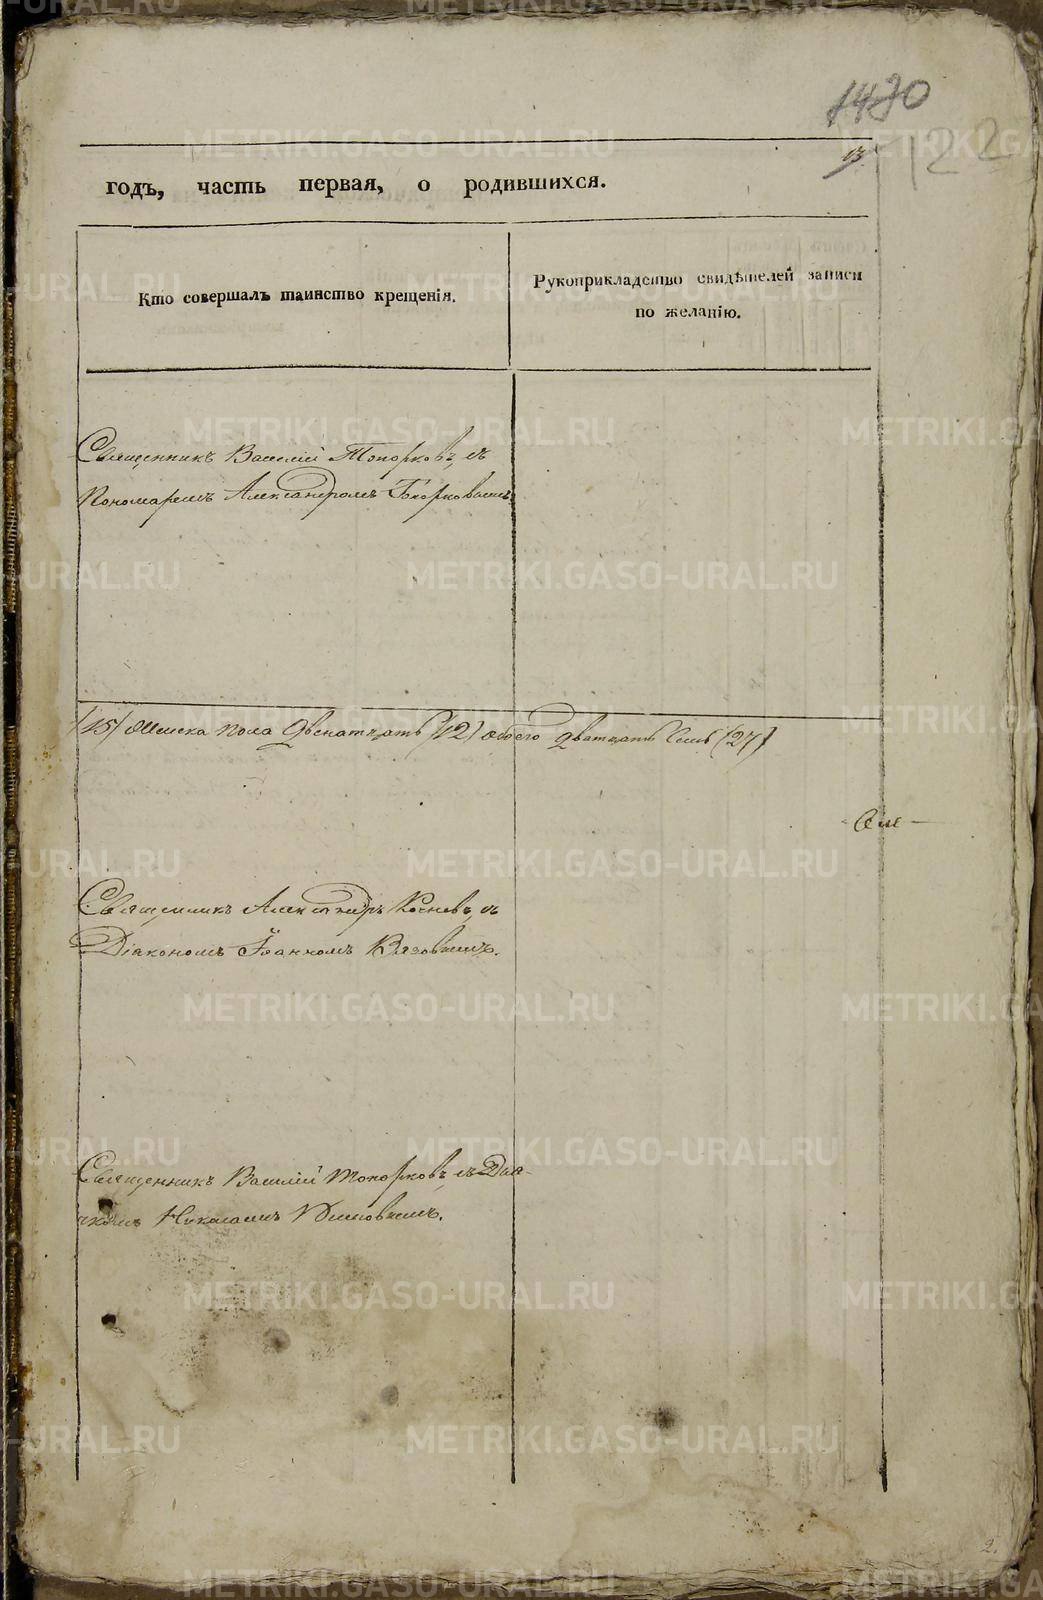 1470
13
122
годъ, часть первая, о родившихся.
Кто совершалъ таинство крещенія.
Рукоприкладство свидѣтелей записи
по желанію.
Священникъ Василій Топорковъ, съ
Пономаремъ Александромъ Топорковымъ
(15) Женска пола двенатцать (12) обоего дватцать семь (27)
Священникъ Александръ съ
Діакономъ Іоанномъ
Священникъ Василій Топорковъ, съ Дья-
чкомъ Николаемъ
2.
METRIKI.GASO-URAL.RU